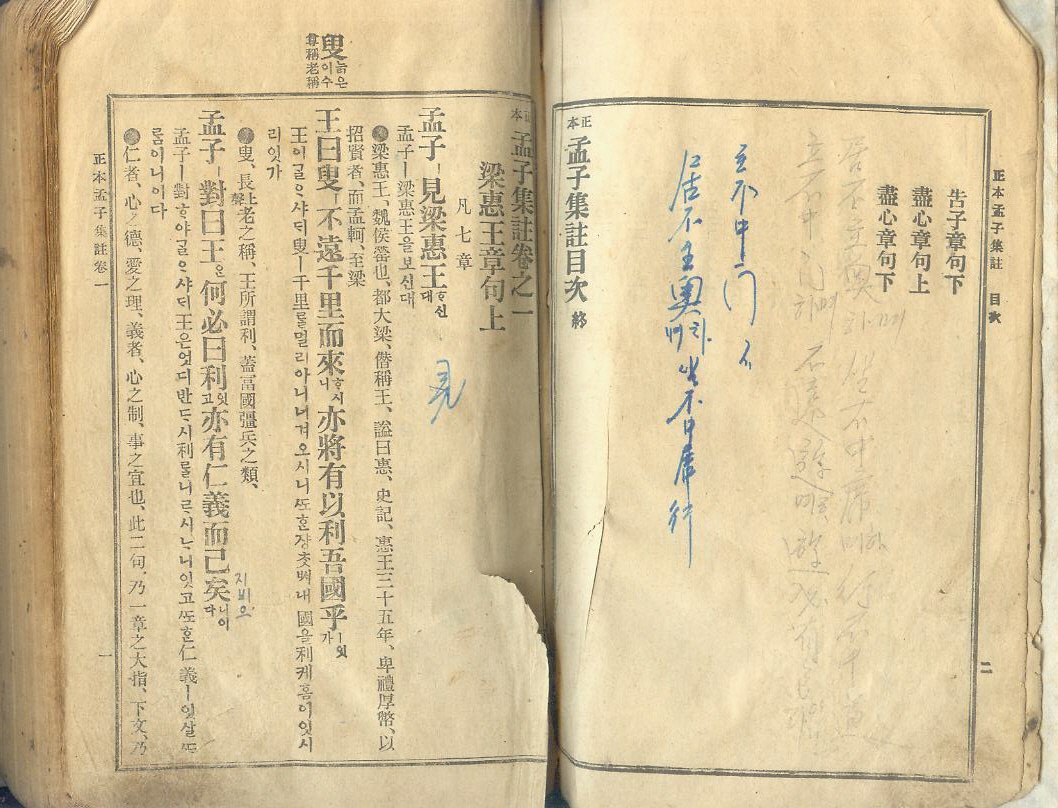 正本孟子集註 目次 二
告子章句下
盡心章句上
盡心章句下
居不主奧 坐不中席 行
正本 孟子集註目次 終
正本 孟子集註卷之一
梁惠王章句上
凡七章
孟子ㅣ見梁惠王ᄒᆞ신대
孟子ㅣ梁惠王을보신대
●梁惠王、魏侯罃也、都大梁、僭稱王、諡曰惠、史記、惠王三十五年、卑禮厚幣、以
招賢者、而孟軻、至梁
叟 늙은이수 尊稱老稱
王曰叟ㅣ不遠千里而來ᄒᆞ시니亦將有以利吾國乎ㅣ잇가
王이ᄀᆞᆯᄋᆞ샤ᄃᆡ叟ㅣ千里ᄅᆞᆯ멀리아니녀겨오시니ᄯᅩᄒᆞᆫ쟝ᄎᆞᆺᄡᅥ내國을利케홈이잇시
리잇가
●叟、長上聲老之稱、王所謂利、蓋富國彊兵之類、
孟子ㅣ對曰王은何必曰利잇고亦有仁義而已矣니이다
孟子ㅣ對ᄒᆞ야ᄀᆞᆯᄋᆞ샤ᄃᆡ王은엇디반ᄃᆞ시利ᄅᆞᆯ니ᄅᆞ시ᄂᆞ니잇고ᄯᅩᄒᆞᆫ仁義ㅣ잇살ᄯᆞ
름이니이다
●仁者、心之德、愛之理、義者、心之制、事之宜也、此二句、乃一章之大指、下文、乃
正本孟子集註卷一 一